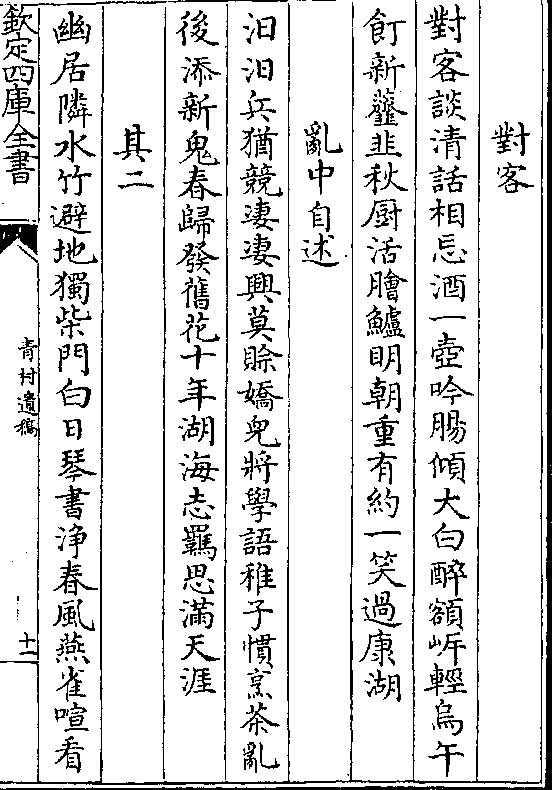 對客
對客談清話相忘酒一壺吟腸傾大白醉額岸輕烏午
飣新虀韭秋厨活膾鱸明朝重有約一笑過康湖
亂中自述
汩汩兵猶競淒淒興莫賒嬌兒將學語稚子慣烹茶亂
後添新鬼春歸發舊花十年湖海志羈思滿天涯
其二
幽居隣水竹避地獨柴門白日琴書浄春風燕雀喧看
欽定四庫全書
青村遺稿
十一